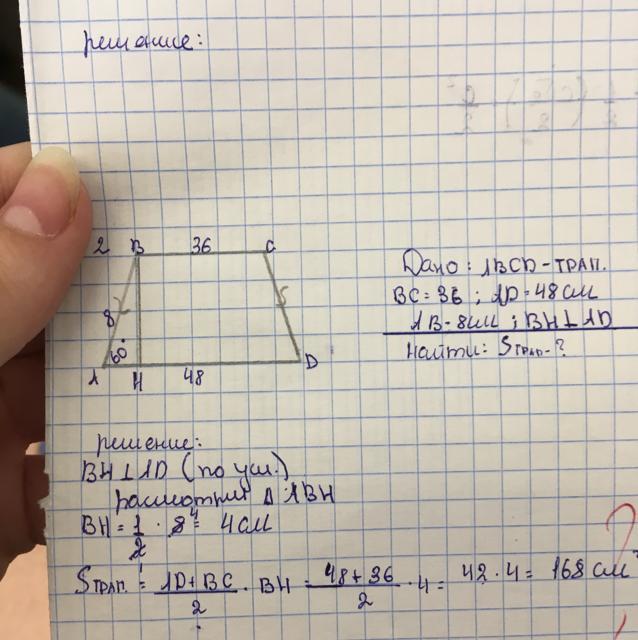 решение:
2 B 36 C
8
60°
A H 48 D
Дано: ABCD - трап.
BC = 36 ; AD = 48 см
AB = 8 см ; BH ⊥ AD
Найти: Sтрап - ?
решение:
BH ⊥ AD (по усл.)
расмотрим Δ ABH
BH = 1/2 · 8 4 = 4 см
Sтрап. = AD + BC / 2 · BH = 48 + 36 / 2 · 4 = 42 · 4 = 168 см²
?